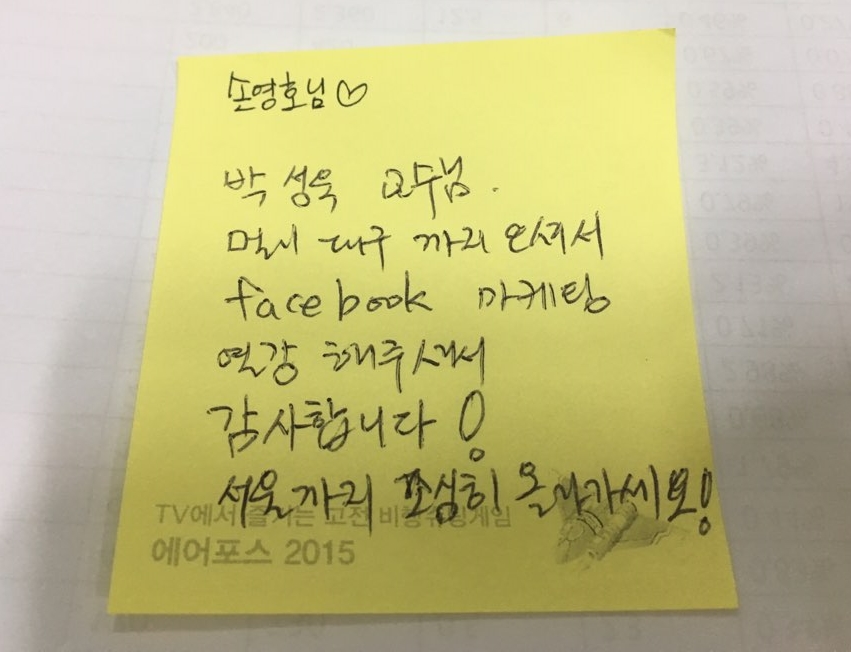 손영호님♡
박성욱 교수님.
멀리 대구 까지 오셔서
facebook 마케팅
열강 해주셔서
감사합니다!
서울까지 조심히 올라가세요!
TV에서 즐기는 고전 비행슈팅게임
에어포스 2015